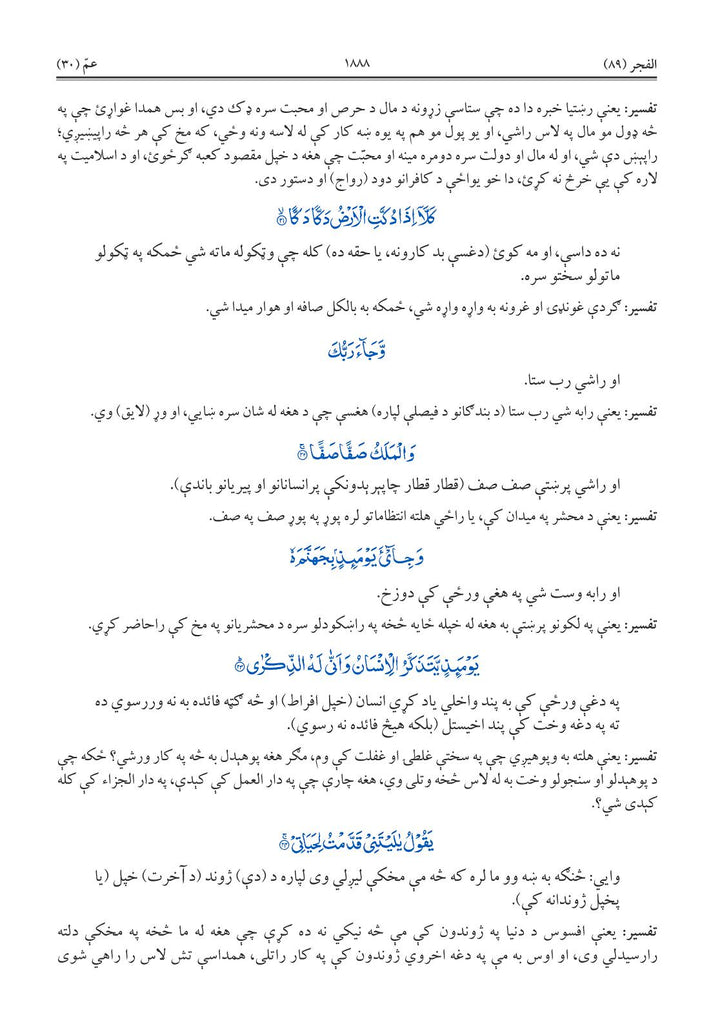 الفجر (۸۹) ۱۸۸۸ عمّ (۳۰)
تفسير: يعنې رښتيا خبره دا ده چې ستاسې زړونه د مال د حرص او محبت سره ډك دي، او بس همدا غواړئ چې په
څه ډول مو مال په لاس راشي، او يو پول مو هم په يوه ښه كار كې له لاسه ونه وځي، كه مخ كې هر څه راپيښيږي؛
راپېښ دې شي، او له مال او دولت سره دومره مينه او محبّت چې هغه د خپل مقصود كعبه ګرځوئ، او د اسلاميت په
لاره كې يې خرڅ نه كړئ، دا خو يواځې د كافرانو دود (رواج) او دستور دى.
كَلَّآ اِذَا دُكَّتِ الْاَرْضُ دَكًّا دَكًّا ۙ﴿۲۱﴾
نه ده داسې، او مه كوئ (دغسې بد كارونه، يا حقه ده) كله چې وټكوله ماته شي ځمكه په ټكولو
ماتولو سختو سره.
تفسير: ګردې غونډۍ او غرونه به واړه واړه شي، ځمكه به بالكل صافه او هوار ميدا شي.
وَّجَآءَ رَبُّكَ
او راشي رب ستا.
تفسير: يعنې رابه شي رب ستا (د بندګانو د فيصلې لپاره) هغسې چې د هغه له شان سره ښايي، او وړ (لايق) وي.
وَالْمَلَكُ صَفًّا صَفًّا ۚ﴿۲۲﴾
او راشي پرښتې صف صف (قطار قطار چاپېرېدونكې پرانسانانو او پيريانو باندې).
تفسير: يعنې د محشر په ميدان كې، يا راځي هلته انتظاماتو لره پوړ په پوړ صف په صف.
وَجِایْٓءَ يَوْمَىِٕذٍۭ بِجَهَنَّمَ ۙ
او رابه وست شي په هغې ورځې كې دوزخ.
تفسير: يعنې په لكونو پرښتې به هغه له خپله ځايه څخه په راښكودلو سره د محشريانو په مخ كې راحاضر كړي.
يَوْمَىِٕذٍ يَّتَذَكَّرُ الْاِنْسَانُ وَاَنّٰى لَهُ الذِّكْرٰى ۭ﴿۲۳﴾
په دغې ورځې كې به پند واخلي ياد كړي انسان (خپل افراط) او څه ګټه فائده به نه وررسوي ده
ته په دغه وخت كې پند اخيستل (بلكه هيڅ فائده نه رسوي).
تفسير: يعنې هلته به وپوهيږي چې په سختې غلطۍ او غفلت كې وم، مګر هغه پوهېدل به څه په كار ورشي؟ ځكه چې
د پوهېدلو او سنجولو وخت به له لاس څخه وتلى وي، هغه چارې چې په دار العمل كې كېدې، په دار الجزاء كې كله
كېدى شي؟.
يَقُوْلُ يٰلَيْتَنِيْ قَدَّمْتُ لِحَيَاتِيْ ۚ﴿۲۴﴾
وايي: څنګه به ښه وو ما لره كه څه مې مخكې ليږلي وى لپاره د (دې) ژوند (د آخرت) خپل (يا
پخپل ژوندانه كې).
تفسير: يعنې افسوس د دنيا په ژوندون كې مې څه نيكي نه ده كړې چې هغه له ما څخه په مخكې دلته
رارسيدلي وى، او اوس به مې په دغه اخروي ژوندون كې په كار راتلى، همداسې تش لاس را راهي شوى